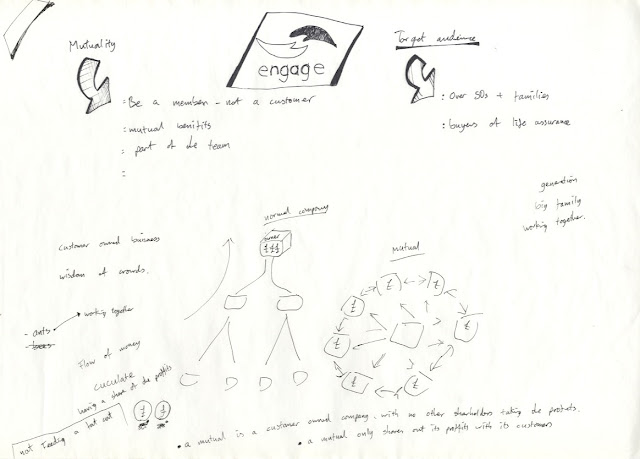 engage
Mutuality
: Be a member - not a customer
: mutual benifits
: part of the team
:
Target audience
: Over 50s + families
: buyers of life assurance
generation
big family
working together.
customer owned business
wisdom of crowds.
- ants
working together
- bees
Flow of money
cuculate
having a share of the profits
not feeding a
normal company
owner
£££
mutual
£
£
£
£
£
£
£
£ £
• a mutual is a customer owned company - with no other shareholders taking the profets.
• a mutual only shares out its proffits with its customers